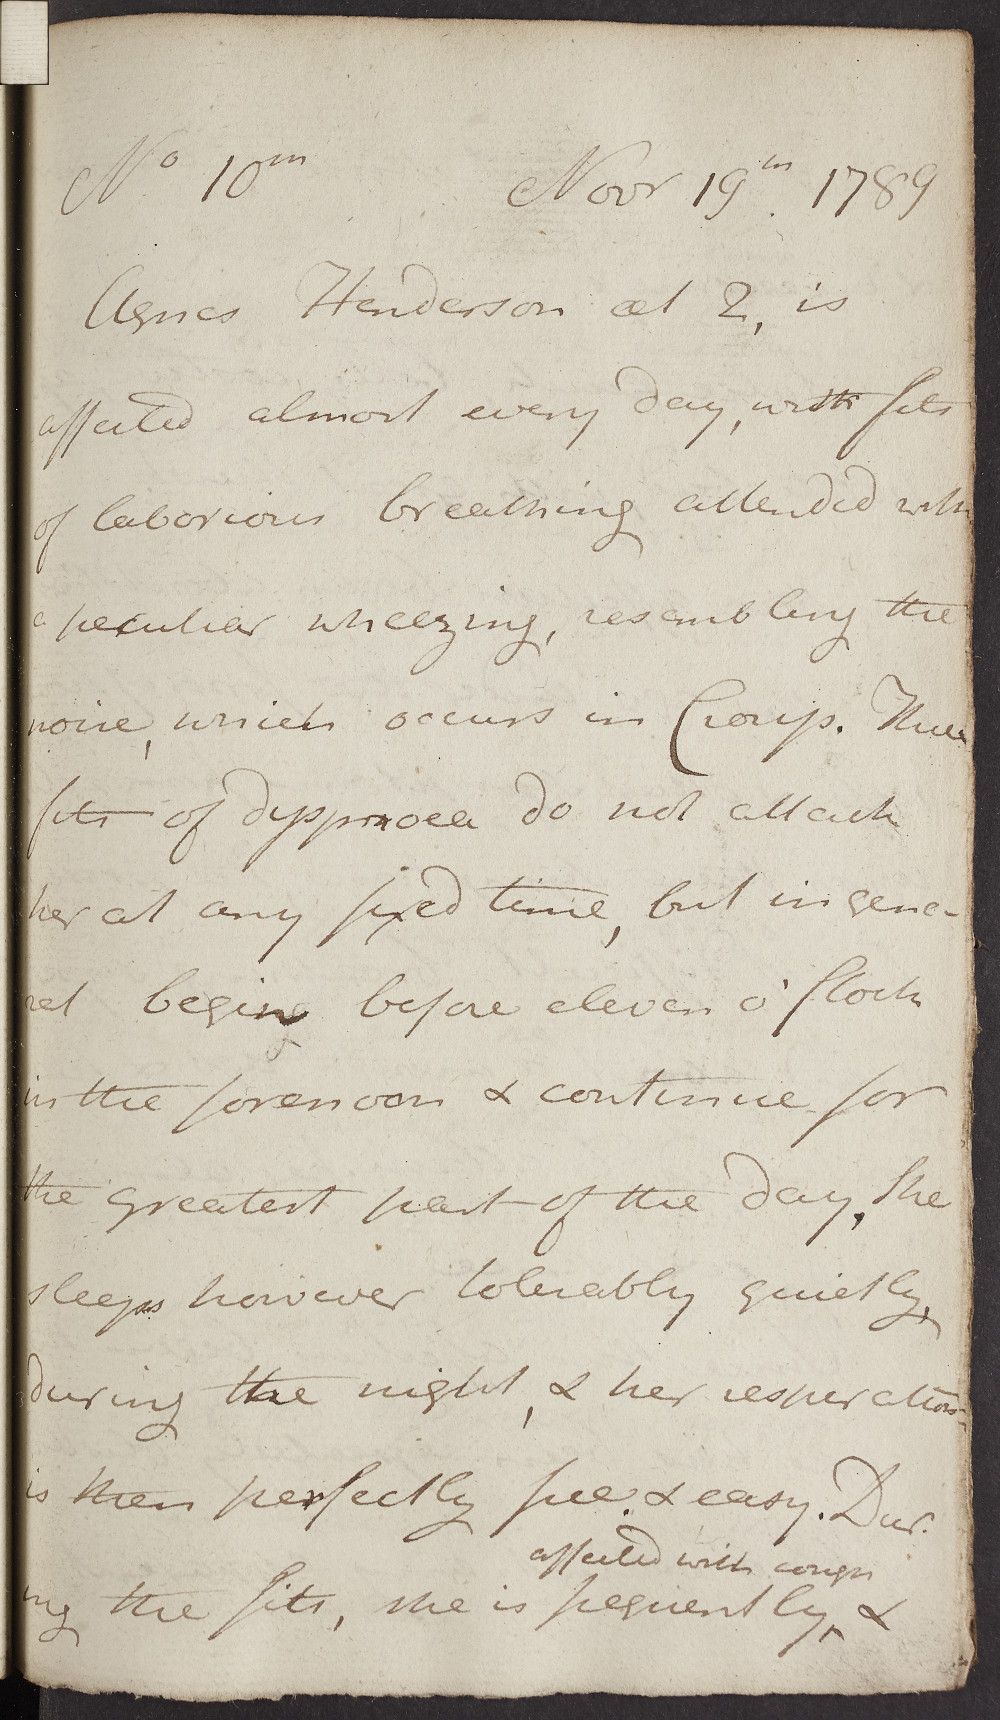 No 10th Novr 19th. 1789
Agnes Henderson æt 2, is
affected almost every day, with fits
of laborious breathing attended with
a peculiar wheezing, resembling the
noise, which occurs in Croup. These
fits of dyspnoea do not attack
her at any fixed time, but in gene-
ral begin before eleven o'Clock
in the forenoon & continue for
the greatest part of the day, She
sleeps however tolerably quietly,
during the night, & her respiration
is then perfectly free & easy. Dur-
affected with cough
ing the fits, she is frequently, &